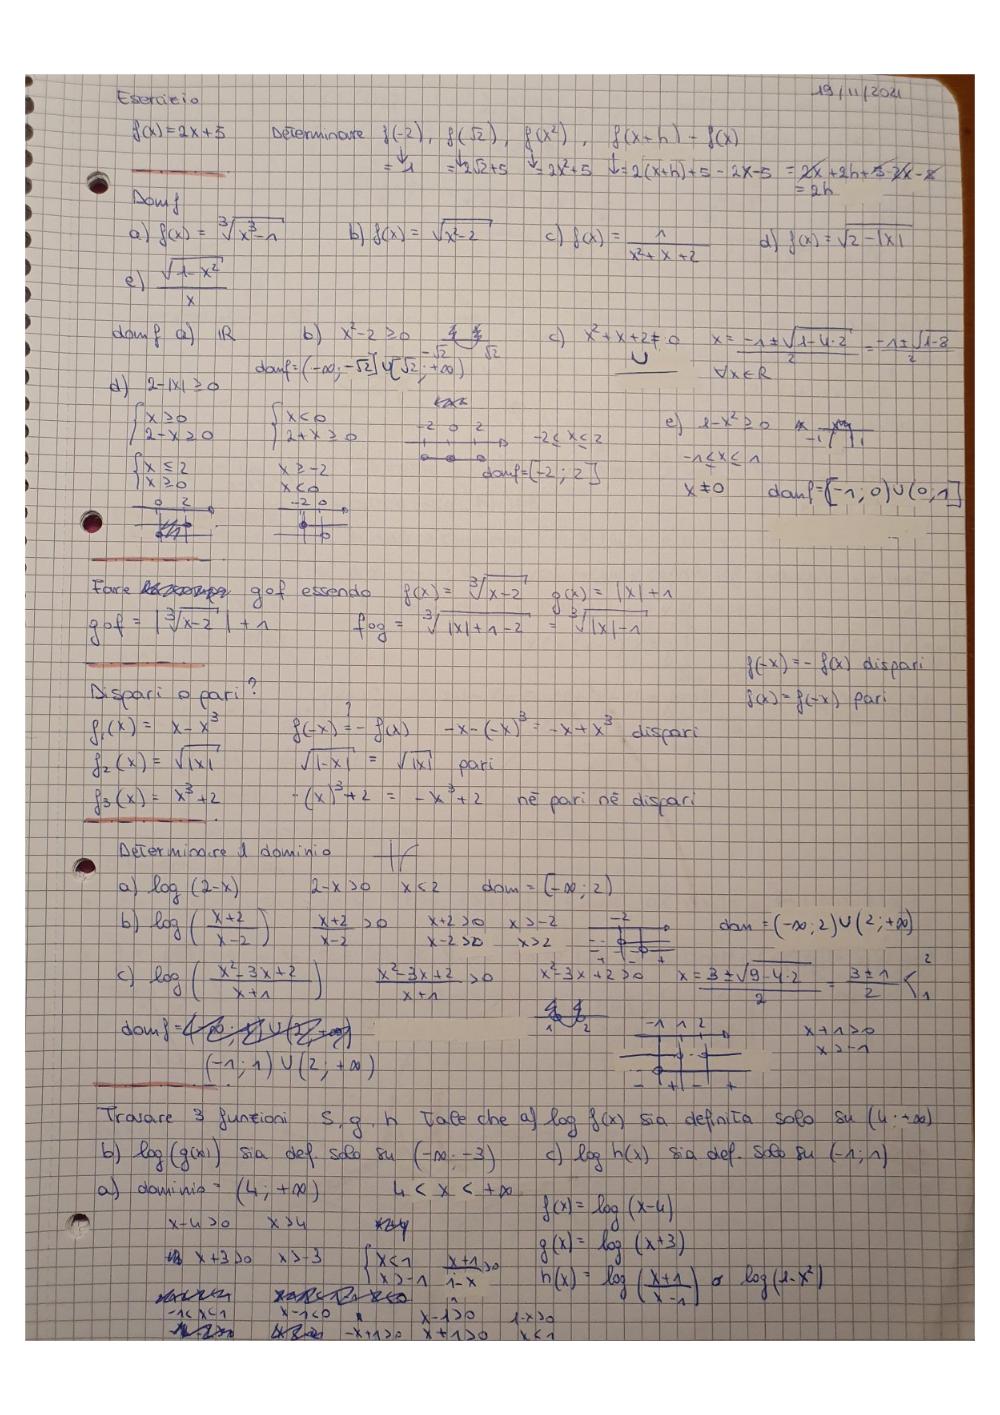 19/11/2021
Esercizio
f(x)=2x+5 Determinare f(-2), f(√2), f(x²), f(x+h)-f(x)
= 1 = 2√2+5 = 2x²+5 = 2(x+h)+5-2x-5 = 2x+2h+5-2x-5
= 2h
Dom f
a) f(x) = ∛(x³-1) b) f(x) = √(x²-2) c) f(x) = 1/(x²+x+2) d) f(x)=√(2-|x|)
e) √(1-x²)/x
dom f a) ℝ b) x²-2 ≥0 -√2 √2 c) x²+x+2≠0 x = (-1±√(1-4·2))/2 = (-1±√(1-8))/2
domf=(-∞;-√2]∪[√2;+∞) ∀x∈R
d) 2-|x| ≥0
{x≥0 {x<0 e) 1-x²≥0 -1 1
2-x≥0 2+x≥0 -2 0 2 -2≤x≤2
{x≤2 x≥-2 domf=[-2;2] -1≤x≤1
x≥0 x<0 x≠0 domf=[-1;0)∪(0;1]
0 2 -2 0
Fare gof essendo f(x) = ∛(x-2) g(x) = |x|+1
gof = |∛(x-2)|+1 fog = ∛(|x|+1-2) = ∛(|x|-1)
f(-x)=-f(x) dispari
Dispari o pari? f(x)=f(-x) pari
f₁(x) = x-x³ f(-x) ?= -f(x) -x-(-x)³ = -x+x³ dispari
f₂(x) = √|x| √|-x| = √|x| pari
f₃(x) = x³+2 -(x)³+2 = -x³+2 nē pari nē dispari
Determinare il dominio
a) log(2-x) 2-x>0 x<2 dom = (-∞;2)
b) log((x+2)/(x-2)) (x+2)/(x-2) >0 x+2>0 x>-2 -2 dom = (-∞;2)∪(2;+∞)
x-2>0 x>2
c) log((x²-3x+2)/(x+1)) (x²-3x+2)/(x+1) >0 x²-3x+2>0 x = (3±√(9-4·2))/2 = (3±1)/2 < 2 1
domf= 1 2 -1 1 2 x+1>0
x>-1
(-1;1)∪(2;+∞) - + - +
Trovare 3 funzioni f, g, h Tale che a) log f(x) sia definita solo su (4;+∞)
b) log(g(x)) sia def. solo su (-∞;-3) c) log h(x) sia def. solo su (-1;1)
a) dominio = (4;+∞) 4<x<+∞ f(x) = log(x-4)
x-4>0 x>4 g(x) = log(x+3)
x+3>0 x>-3 {x<1 x>-1 (x+1)/(1-x) >0 h(x) = log((x+1)/(x-1)) o log(1-x²)
-1<x<1 x-1<0 x-1>0 1-x>0
-x+1>0 x+1>0 x<1